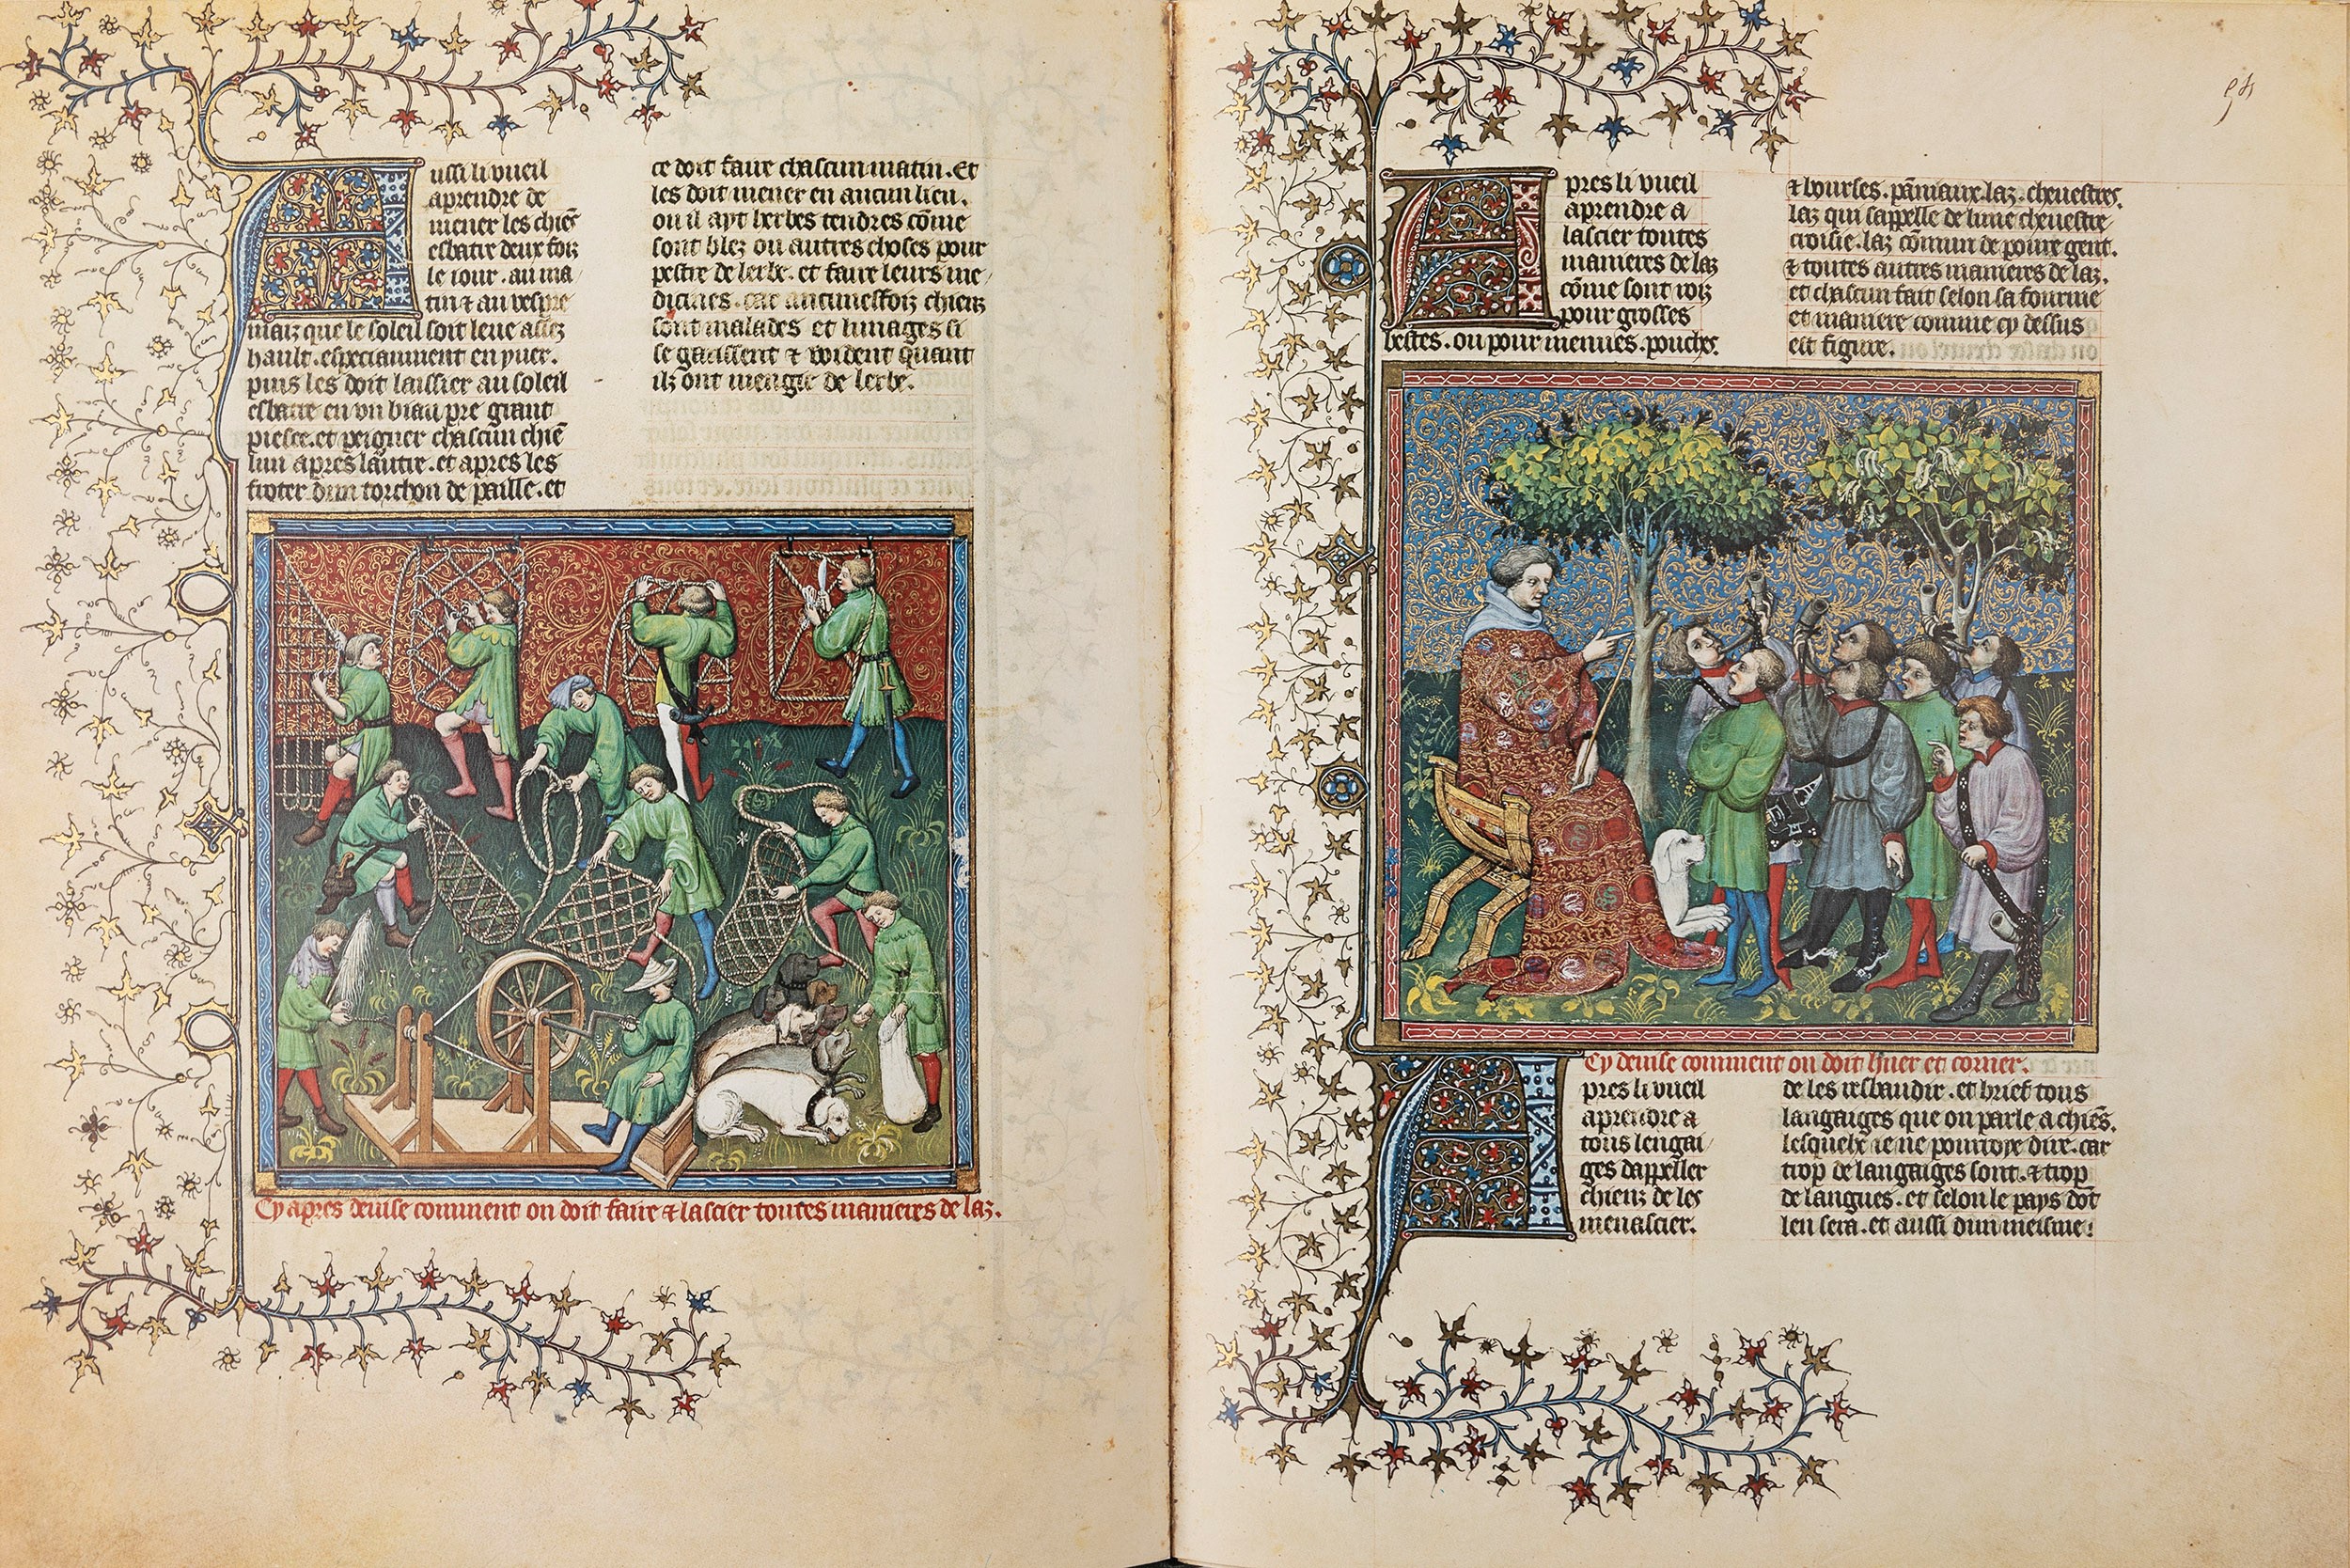 Aussi li vueil
aprendre de
mener les chiēs
esbatre deux foiz
le iour. au ma
tin & au vespre
maiz que le soleil soit leue assez
hault. especiaument en yuer.
puis les doit laissier au soleil
esbatre en un biau pre grant
piesce. et peigner chascun chiē
lun apres lautre. et apres les
froter dun torchon de paille. et
ce doit faire chascun matin. Et
les doit mener en aucun lieu.
ou il ayt herbes tendres cōme
sont blez ou autres choses pour
pestre de lerbe. et faire leurs me
dicines. car aucunesfoiz chienz
sont malades et
se garissent & voident quant
ilz ont mengie de lerbe.
Cy apres deuise comment on doit faire & lascier toutes manieres de laz.
Apres li vueil
aprendre a
lascier toutes
manieres de laz
cōme sont roiz
pour grosses
bestes. ou pour menues. pouches.
& bourses. pāniaux. laz. cheuestres.
laz qui sappelle de lune cheuestre
croisie. laz cōmun de poure gent.
& toutes autres manieres de laz.
et chascun fait selon sa fourme
et maniere comme cy dessus
est figure.
Cy deuise comment on doit huer et corner.
Apres li vueil
aprendre a
tous lengai
ges dappeller
chienz de les
menascier.
de les resbaudir. et brief tous
langaiges que on parle a chiēs.
lesquelx ie ne pourroye dire. car
trop de langaiges sont. & trop
de langues. et selon le pays dōt
len sera. et aussi dun meisme